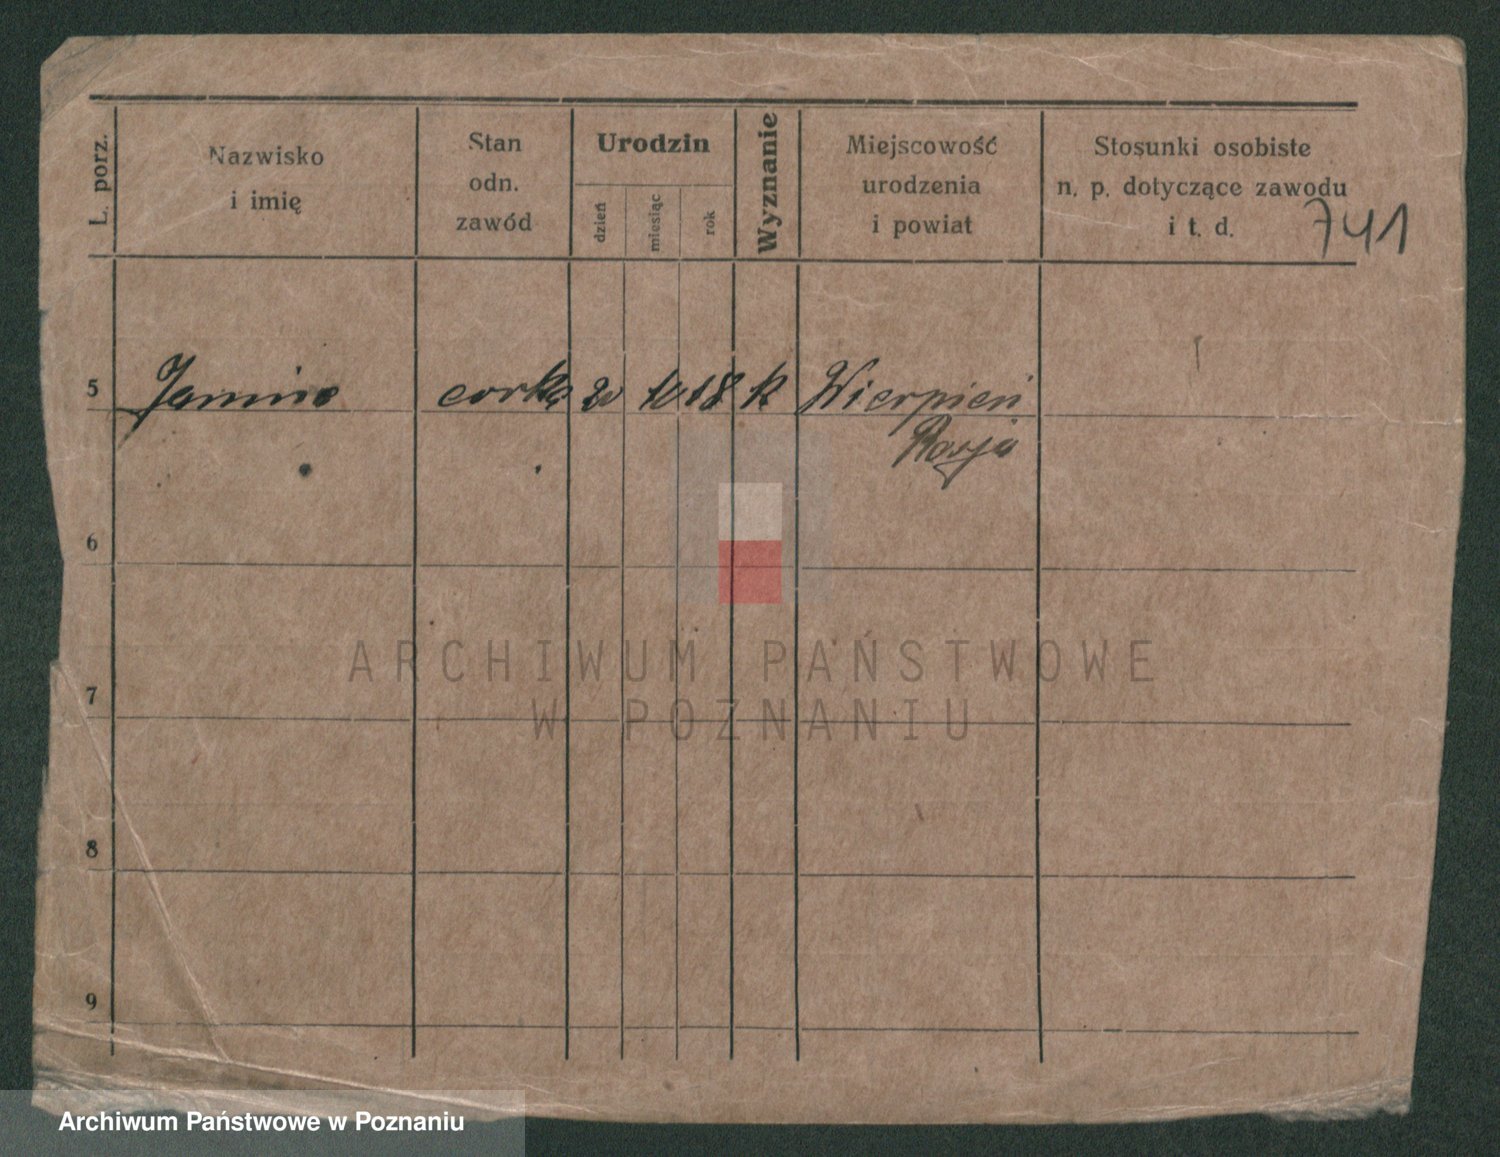 L. porz.
Nazwisko
i imię
Stan
odn.
zawód
Urodzin
dzień
miesiąc
rok
Wyznanie
Miejscowość
urodzenia
i powiat
Stosunki osobiste
n. p. dotyczące zawodu
i t. d.
741
5 Janina corka 20 10 18 k Wierpień
Rosja
6
7
8
9
ARCHIWUM PAŃSTWOWE
W POZNANIU
Archiwum Państwowe w Poznaniu